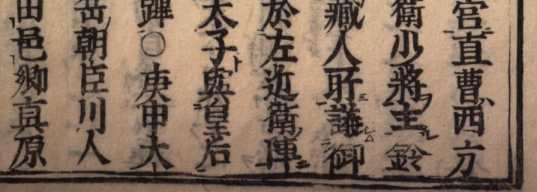 宮直曹西方
衛少將主鈴
藏人所護御
於左近衛陣
太子與皇后
蹕○庚申大
岳朝臣川人
田邑郷真原